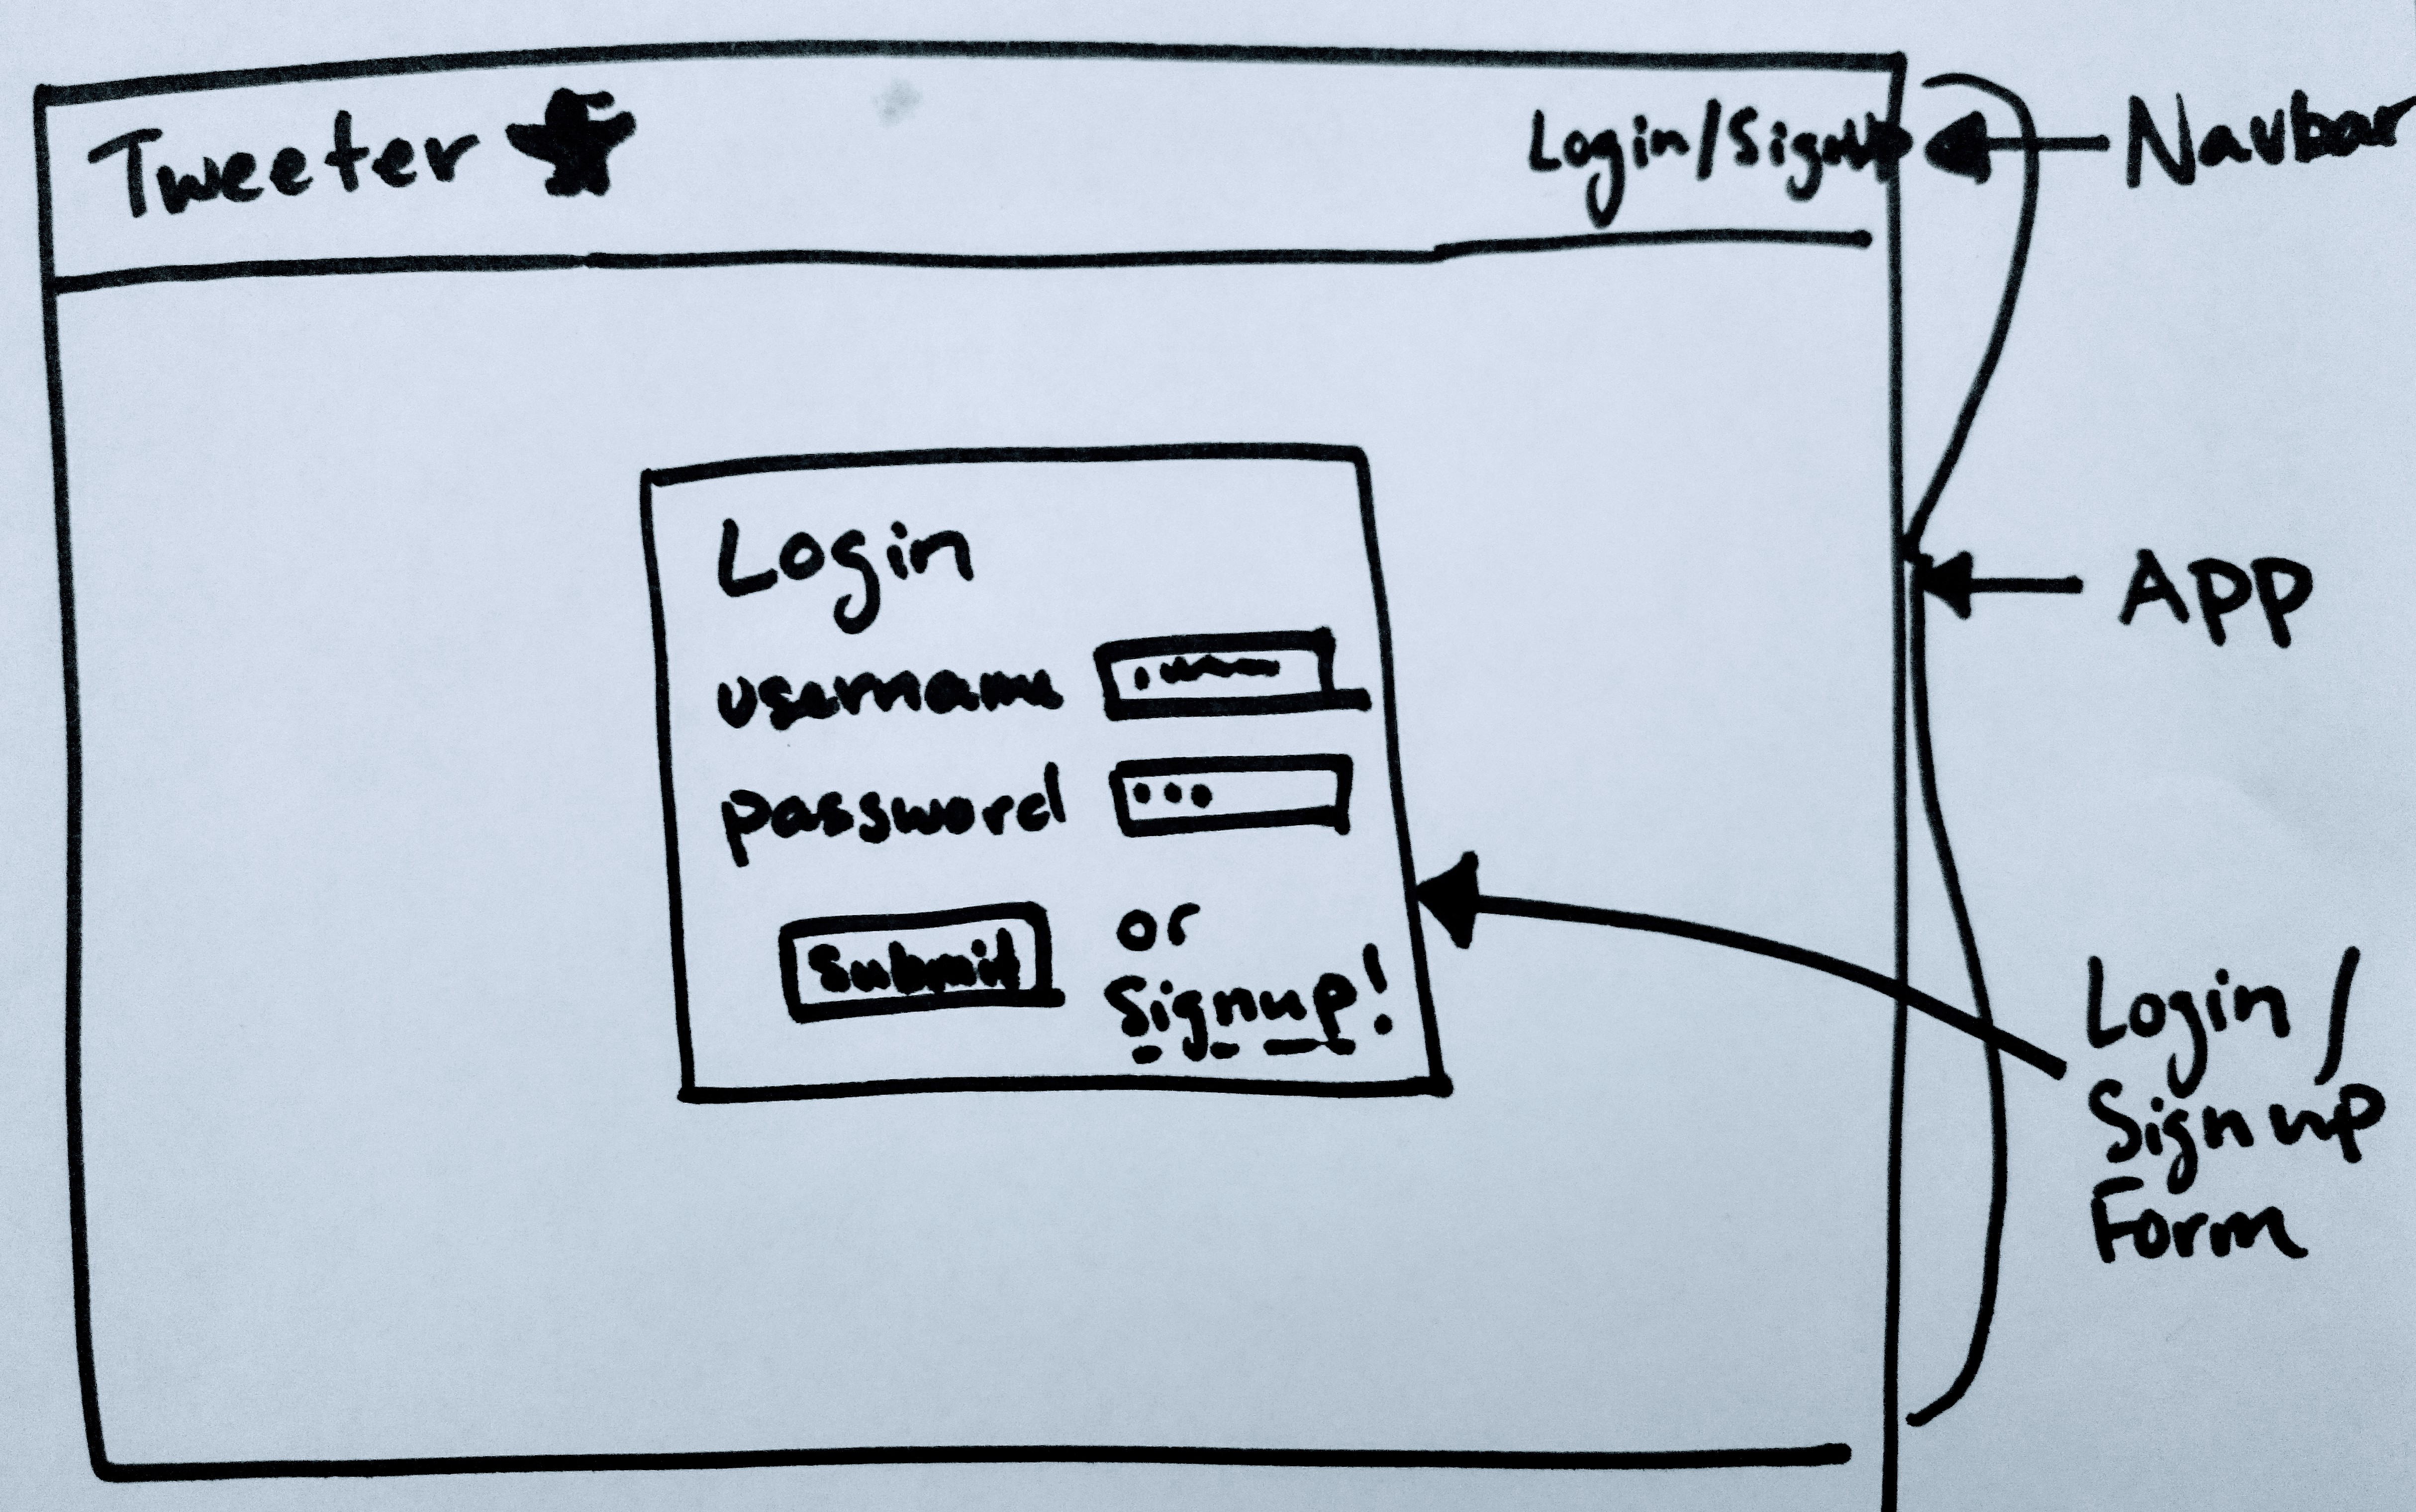 Tweeter
Login/SignUp
Navbar
Login
username
password
Submit
or
Signup!
App
Login /
Signup
Form